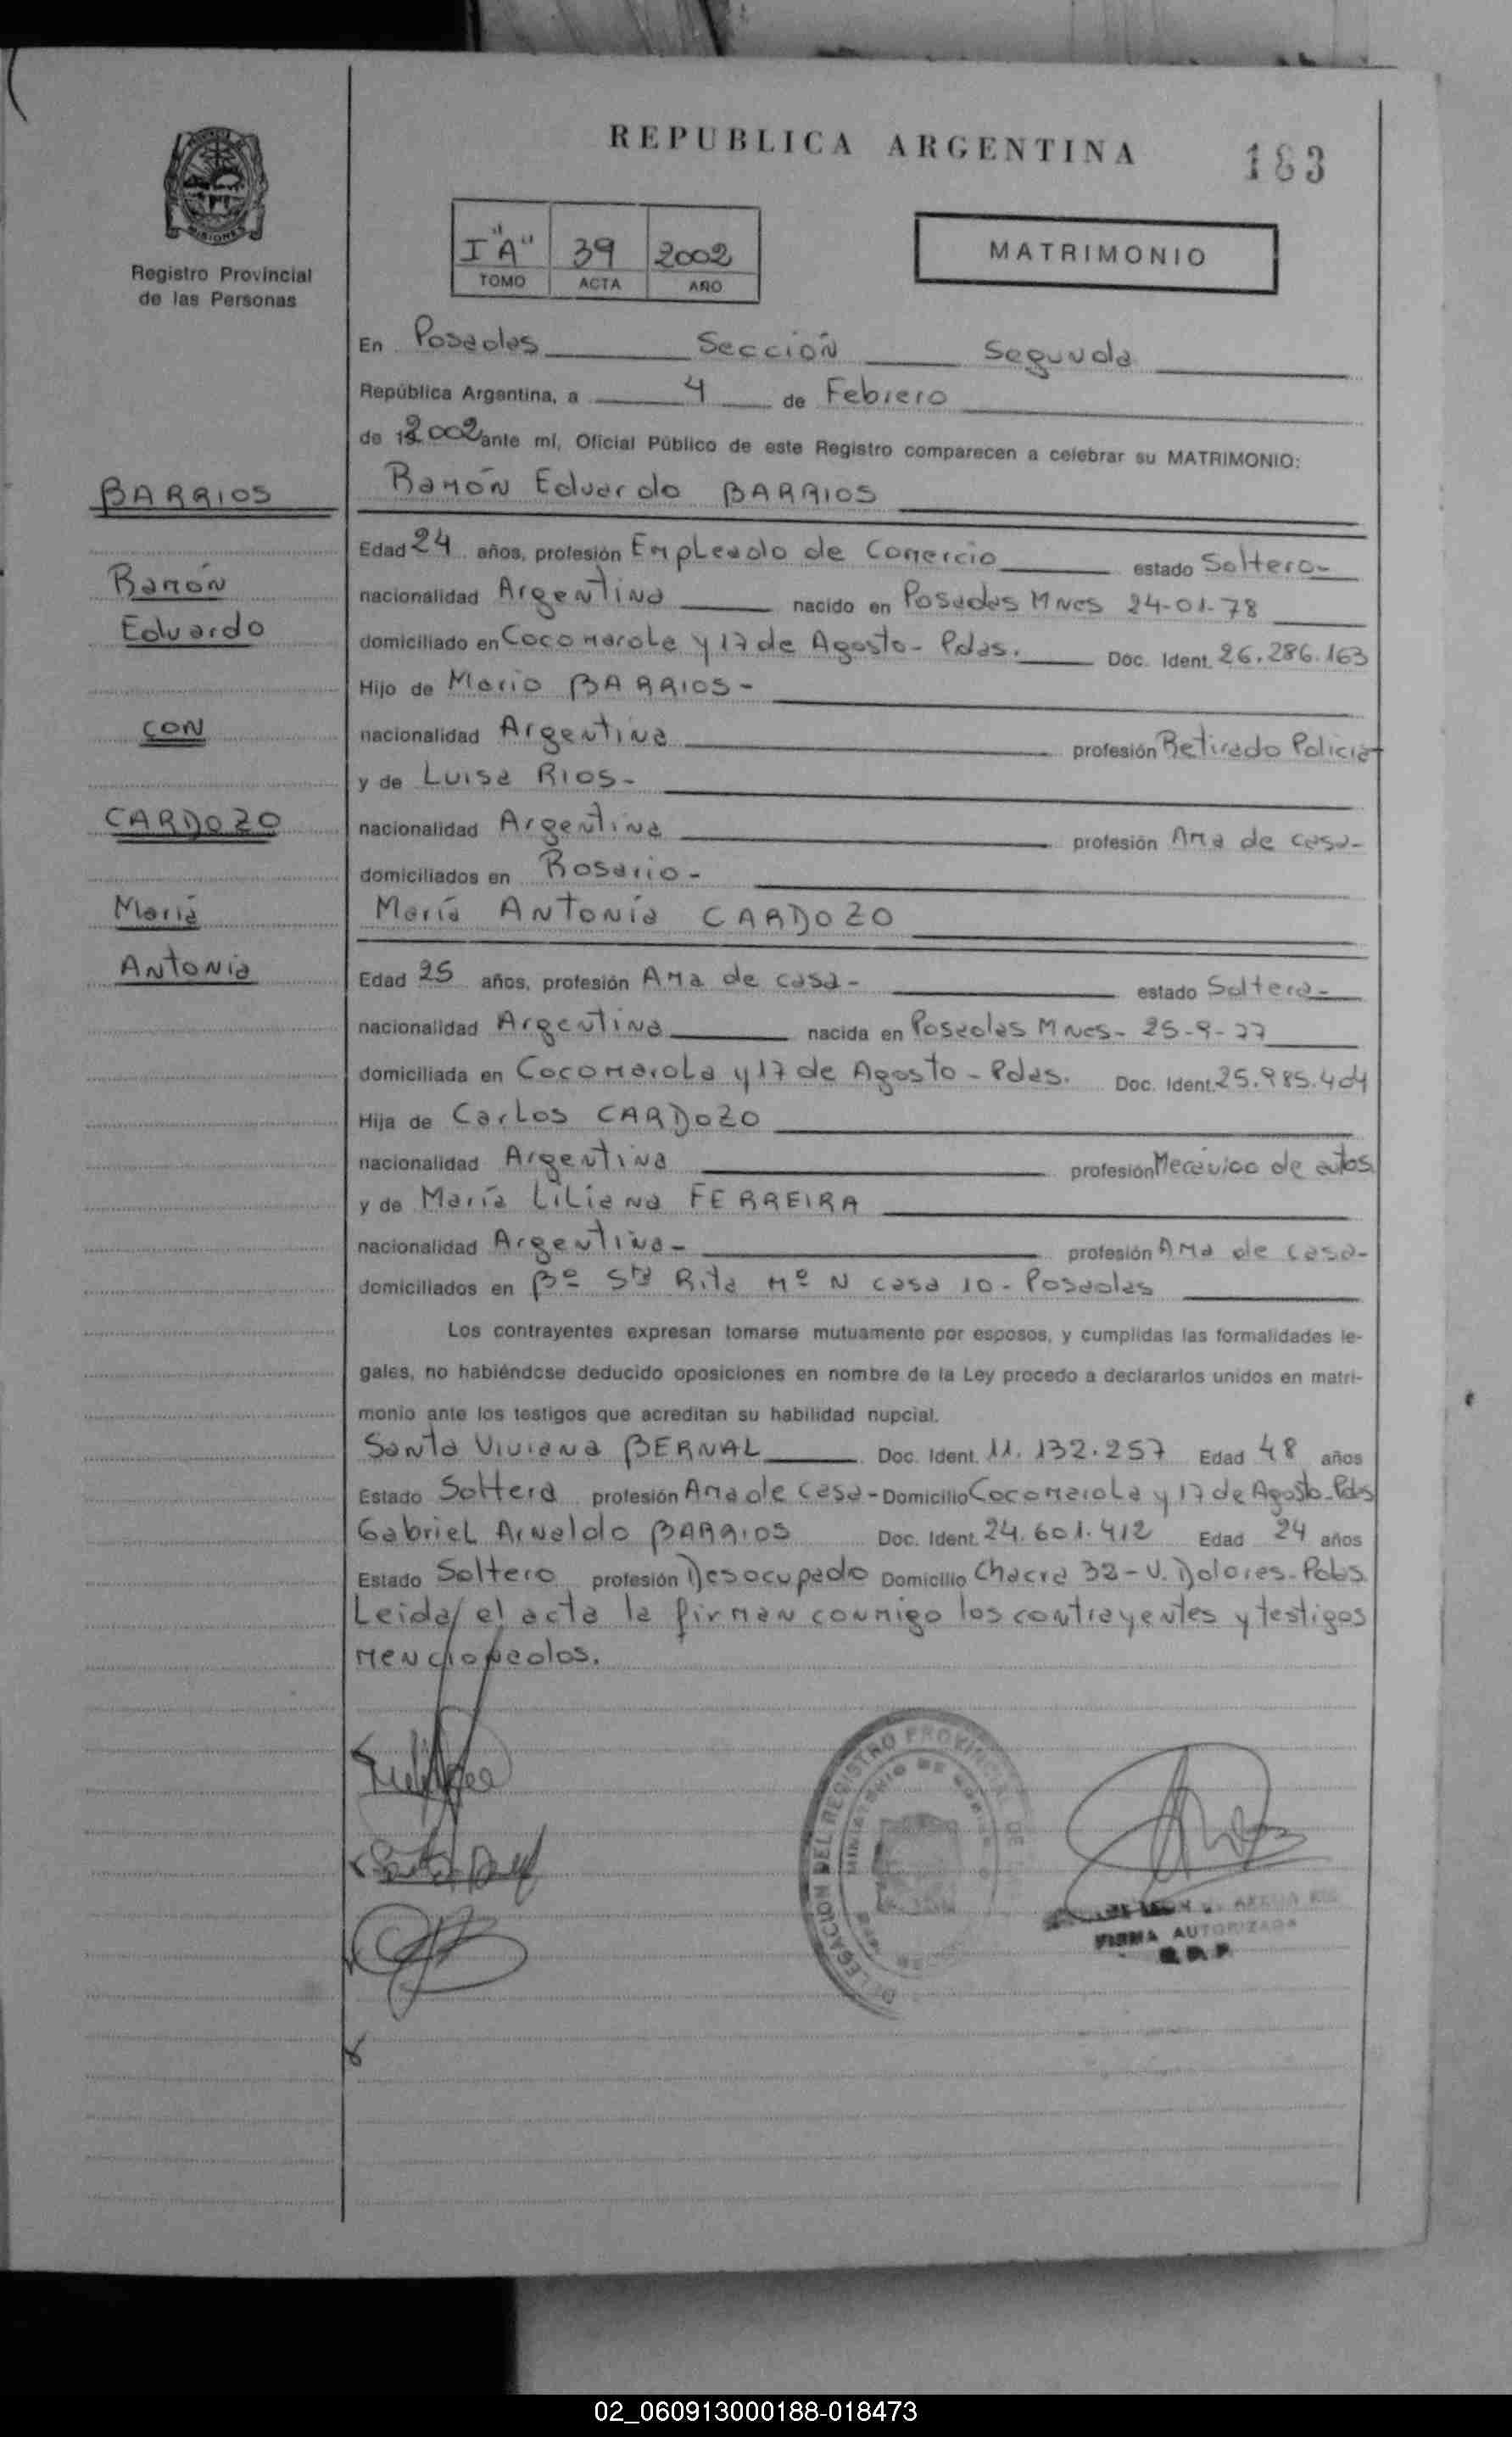 REPUBLICA ARGENTINA
183
MISIONES
Registro Provincial
de las Personas
I "A" 39 2002
TOMO ACTA AÑO
MATRIMONIO
En Posadas Sección Segunda
República Argentina, a 4 de Febrero
de 2002 ante mí, Oficial Público de este Registro comparecen a celebrar su MATRIMONIO:
BARRIOS
Ramón
Eduardo
CON
CARDOZO
María
Antonia
Ramón Eduardo BARRIOS
Edad 24 años, profesión Empleado de Comercio estado Soltero-
nacionalidad Argentina nacido en Posadas Mnes 24-01-78
domiciliado en Cocomarola y 17 de Agosto - Pdas. Doc. Ident. 26.286.163
Hijo de Mario BARRIOS -
nacionalidad Argentina profesión Retirado Policia
y de Luisa RIOS -
nacionalidad Argentina profesión Ama de casa-
domiciliados en Rosario -
María Antonia CARDOZO
Edad 25 años, profesión Ama de casa - estado Soltera-
nacionalidad Argentina nacida en Posadas Mnes- 25-9-77
domiciliada en Cocomarola y 17 de Agosto - Pdas. Doc. Ident. 25.985.404
Hija de Carlos CARDOZO
nacionalidad Argentina profesión Mecánico de autos
y de María Liliana FERREIRA
nacionalidad Argentina - profesión Ama de casa-
domiciliados en Bº Sta Rita Mº N casa 10 - Posadas
Los contrayentes expresan tomarse mutuamente por esposos, y cumplidas las formalidades le-
gales, no habiéndose deducido oposiciones en nombre de la Ley procedo a declararlos unidos en matri-
monio ante los testigos que acreditan su habilidad nupcial.
Santa Viviana BERNAL Doc. Ident. 11.132.257 Edad 48 años
Estado Soltera profesión Ama de Casa - Domicilio Cocomarola y 17 de Agosto - Pdas
Gabriel Arnaldo BARRIOS Doc. Ident. 24.601.412 Edad 24 años
Estado Soltero profesión Desocupado Domicilio Chacra 32 - V. Dolores - Pdas.
Leida el acta la firman conmigo los contrayentes y testigos
mencionados.
DELEGACION DEL REGISTRO PROVINCIAL DE
MINISTERIO DE
FIRMA AUTORIZADA
02_060913000188-018473